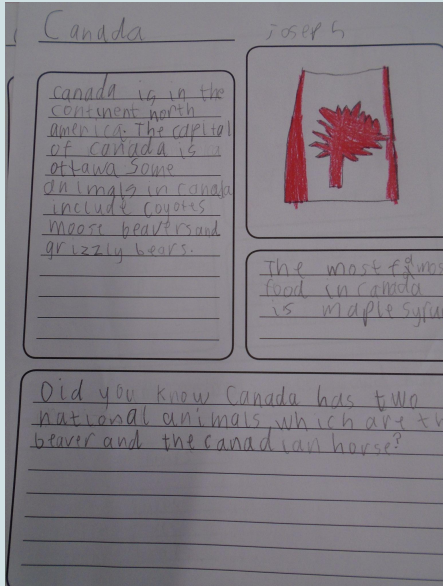 Canada
Joseph
canada is in the
continent north
america. The capital
of canada is
ottawa some
animals in canada
include coyotes
moose beavers and
grizzly bears.
The most famous
food in canada
is maple syru
Did you know Canada has two
national animals which are th
beaver and the canadian horse?